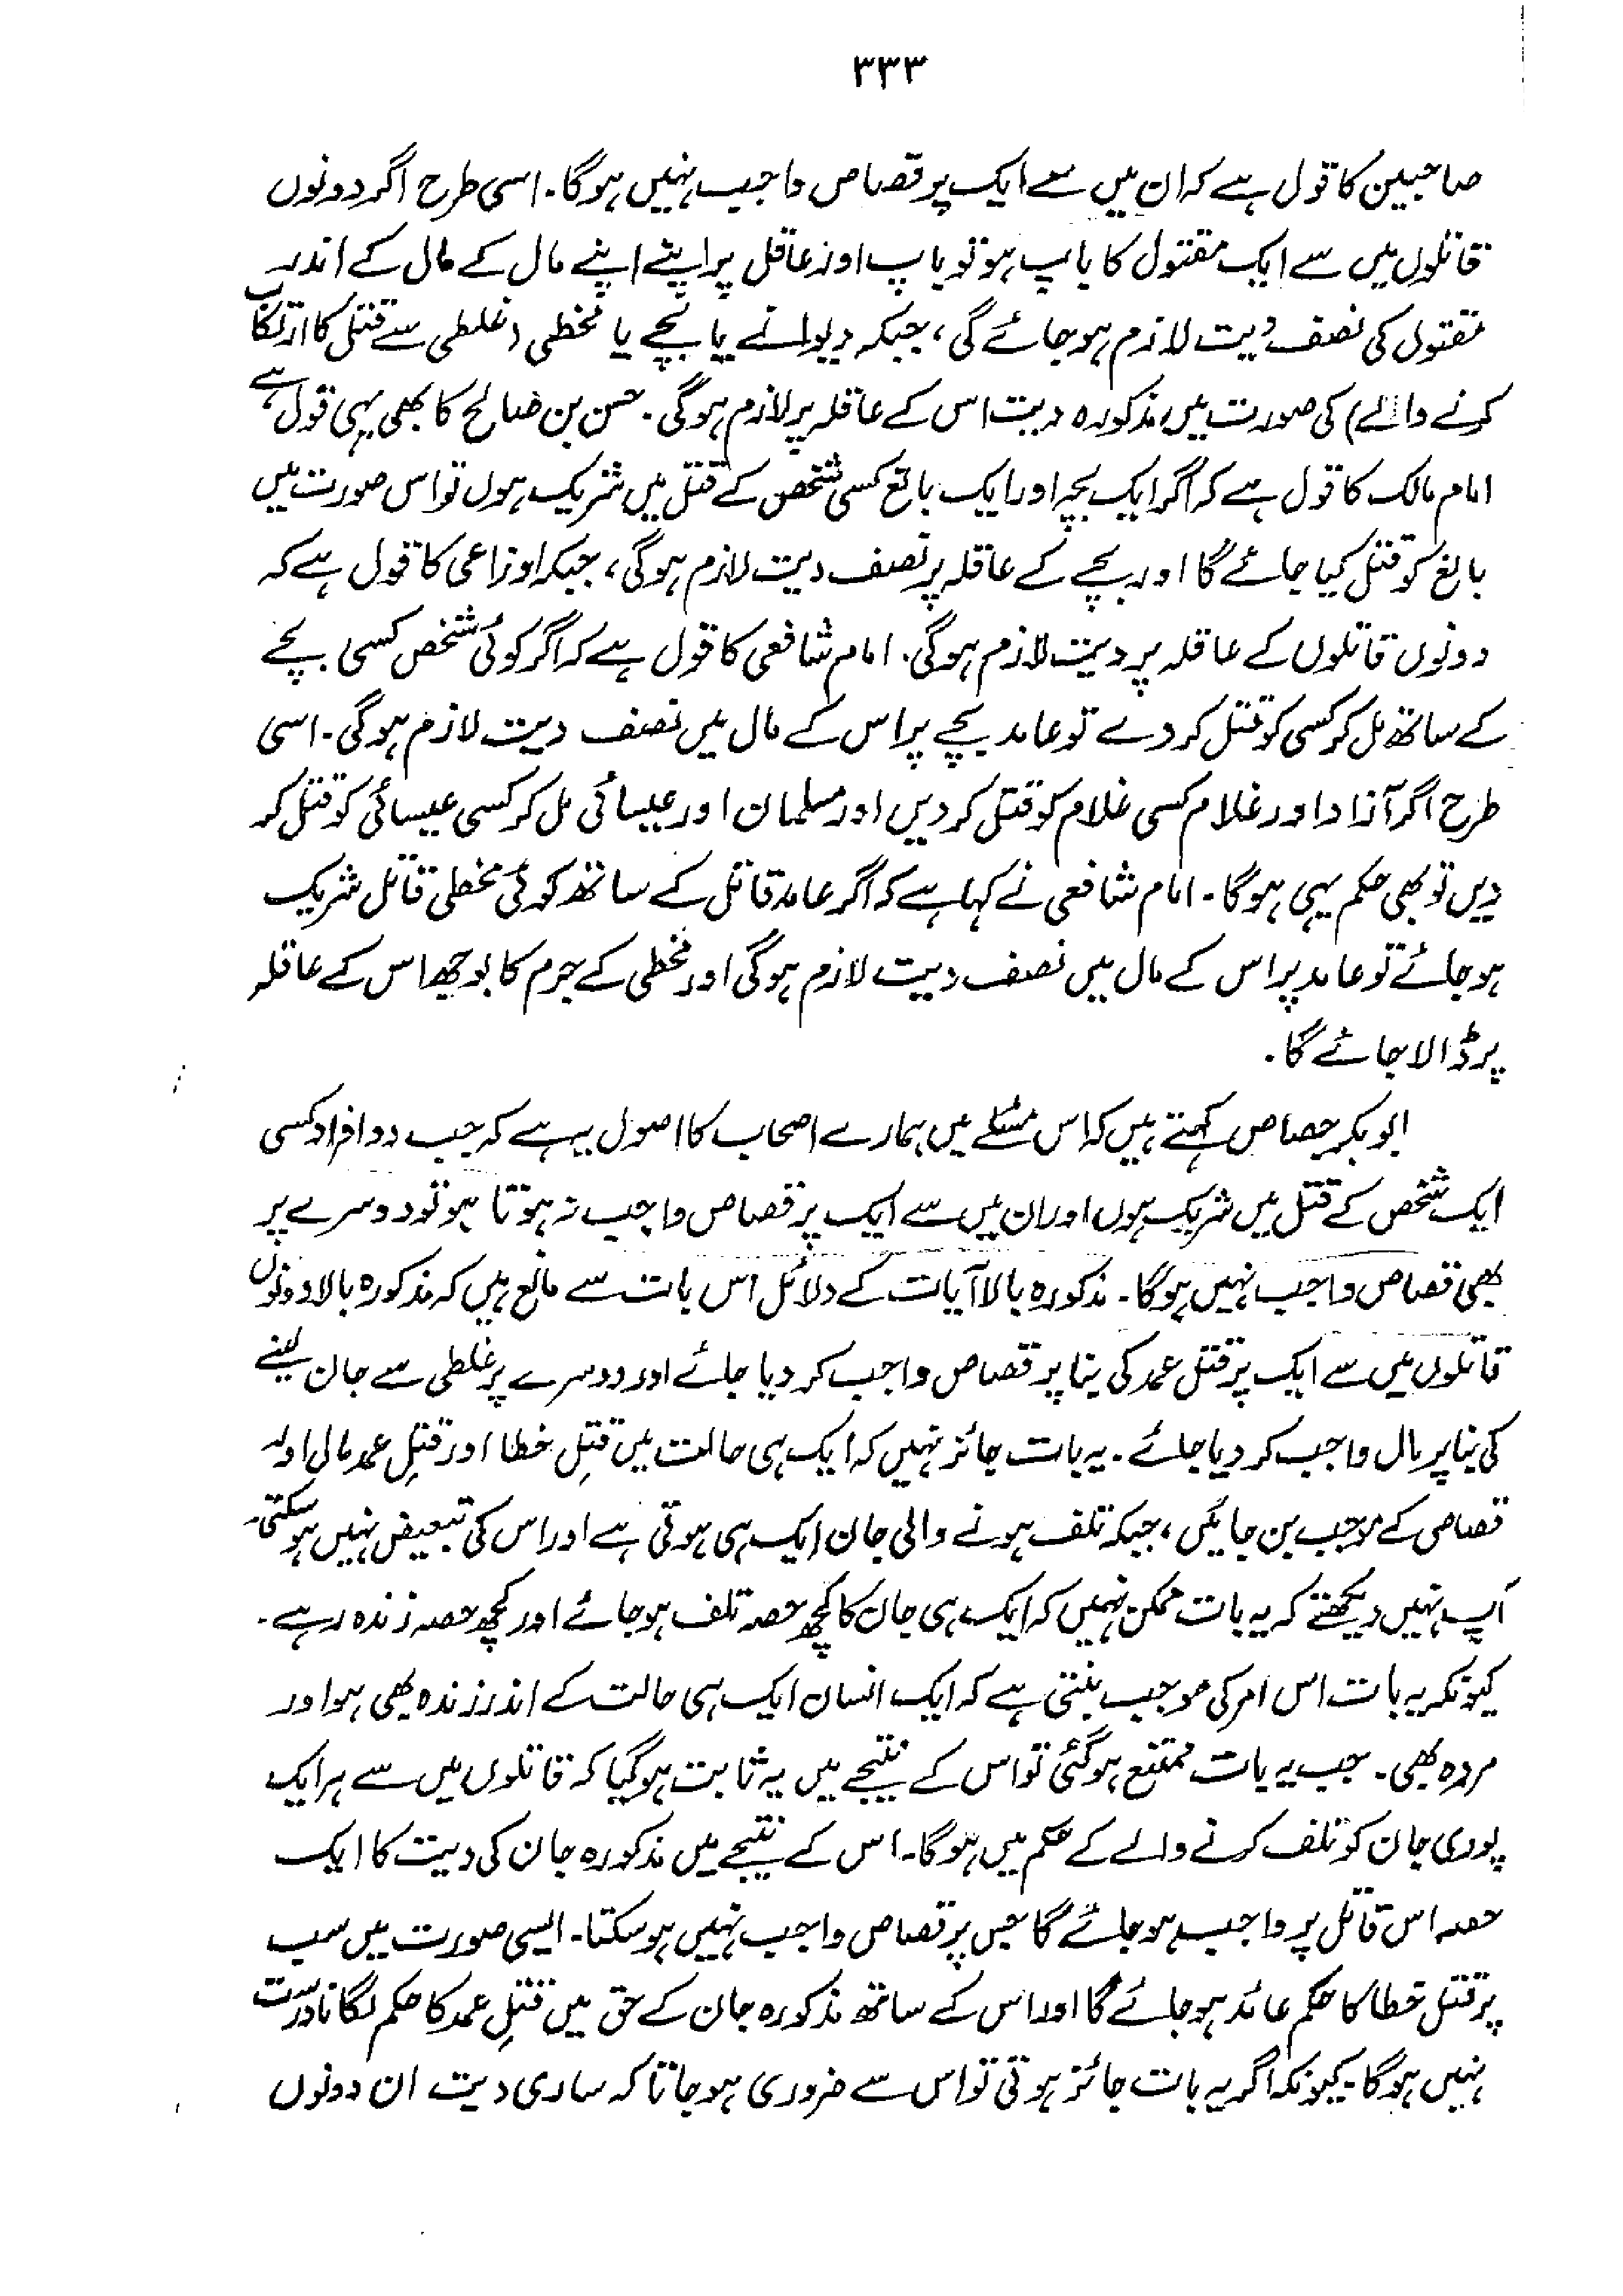 ۳۳۳
صاحبین کا قول ہے کہ ان میں سے ایک پر قصاص واجب نہیں ہوگا۔ اسی طرح اگر دونوں
قاتلوں میں سے ایک مقتول کا باپ ہو تو باپ اور عاقل پر اپنے اپنے مال کے مال کے اندر
مقتول کی نصف دیت لازم ہوجائے گی، جبکہ دیوانے یا بچے یا مخطی (غلطی سے قتل کا ارتکاب
کرنے والے) کی صورت میں مذکورہ دیت اس کے عاقلہ پر لازم ہوگی۔ حسن بن صالح کا بھی یہی قول ہے،
امام مالک کا قول ہے کہ اگر ایک بچہ اور ایک بالغ کسی شخص کے قتل میں شریک ہوں تو اس صورت میں
بالغ کو قتل کیا جائے گا اور بچے کے عاقلہ پر نصف دیت لازم ہوگی، جبکہ اوزاعی کا قول ہے کہ
دونوں قاتلوں کے عاقلہ پر دیت لازم ہوگی۔ امام شافعی کا قول ہے کہ اگر کوئی شخص کسی بچے
کے ساتھ مل کر کسی کو قتل کر دے تو عامد بچے پر اس کے مال میں نصف دیت لازم ہوگی۔ اسی
طرح اگر آزاد اور غلام کسی غلام کو قتل کر دیں اور مسلمان اور عیسائی مل کر کسی عیسائی کو قتل کر
دیں تو بھی حکم یہی ہوگا۔ امام شافعی نے کہا ہے کہ اگر عامد قاتل کے ساتھ کوئی مخطی قاتل شریک
ہوجائے تو عامد پر اس کے مال میں نصف دیت لازم ہوگی اور مخطی کے جرم کا بوجھ اس کے عاقلہ
پر ڈالا جائے گا۔
ابوبکر جصاص کہتے ہیں کہ اس مسئلے میں ہمارے اصحاب کا اصول یہ ہے کہ جب دو افراد کسی
ایک شخص کے قتل میں شریک ہوں اور ان میں سے ایک پر قصاص واجب نہ ہوتا ہو تو دوسرے پر
بھی قصاص واجب نہیں ہوگا۔ مذکورہ بالا آیات کے دلائل اس بات سے مانع ہیں کہ مذکورہ بالا دونوں
قاتلوں میں سے ایک پر قتل عمد کی بنا پر قصاص واجب کر دیا جائے اور دوسرے پر غلطی سے جان لینے
کی بنا پر مال واجب کر دیا جائے۔ یہ بات جائز نہیں کہ ایک ہی حالت میں قتلِ خطا اور قتلِ عمد مال اور
قصاص کے موجب بن جائیں، جبکہ تلف ہونے والی جان ایک ہی ہوتی ہے اور اس کی تبعیض نہیں ہوسکتی۔
آپ نہیں دیکھتے کہ یہ بات ممکن نہیں کہ ایک ہی جان کا کچھ حصہ تلف ہوجائے اور کچھ حصہ زندہ رہے۔
کیونکہ یہ بات اس امر کی موجب بنتی ہے کہ ایک انسان ایک ہی حالت کے اندر زندہ بھی ہو اور
مردہ بھی۔ جب یہ بات ممتنع ہوگئی تو اس کے نتیجے میں یہ ثابت ہوگیا کہ قاتلوں میں سے ہر ایک
پوری جان کو تلف کرنے والے کے حکم میں ہوگا۔ اس کے نتیجے میں مذکورہ جان کی دیت کا ایک
حصہ اس قاتل پر واجب ہوجائے گا جس پر قصاص واجب نہیں ہوسکتا۔ ایسی صورت میں سب
پر قتل خطا کا حکم عائد ہوجائے گا اور اس کے ساتھ مذکورہ جان کے حق میں قتلِ عمد کا حکم لگانا درست
نہیں ہوگا۔ کیونکہ اگر یہ بات جائز ہوتی تو اس سے ضروری ہوجاتا کہ ساری دیت ان دونوں